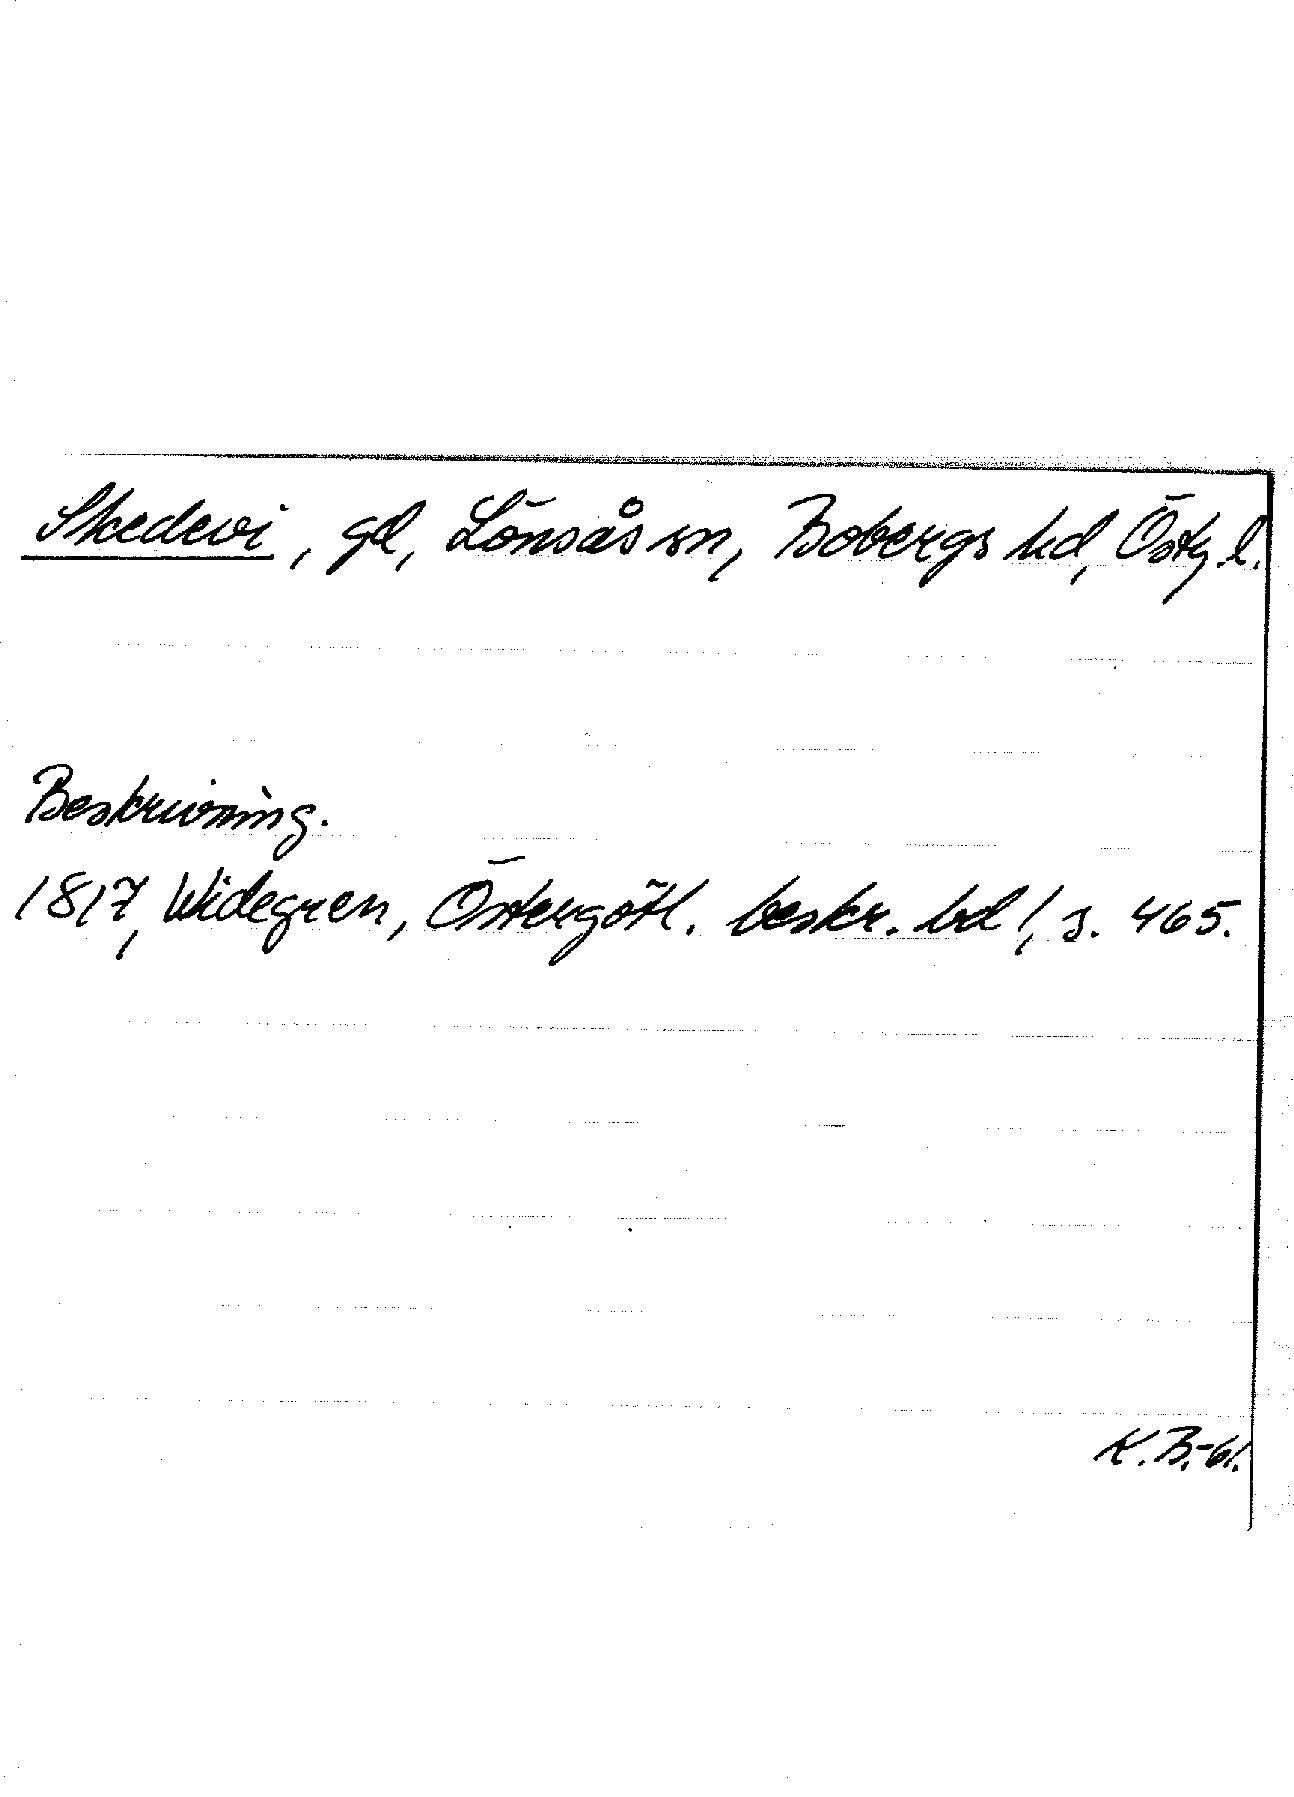 Skedevi, gd, Lönsås sn, Bobergs hd, Östg. l.
Beskrivning.
1817, Widegren, Östergötl. beskr. bd 1, s. 465.
K.B.-61.